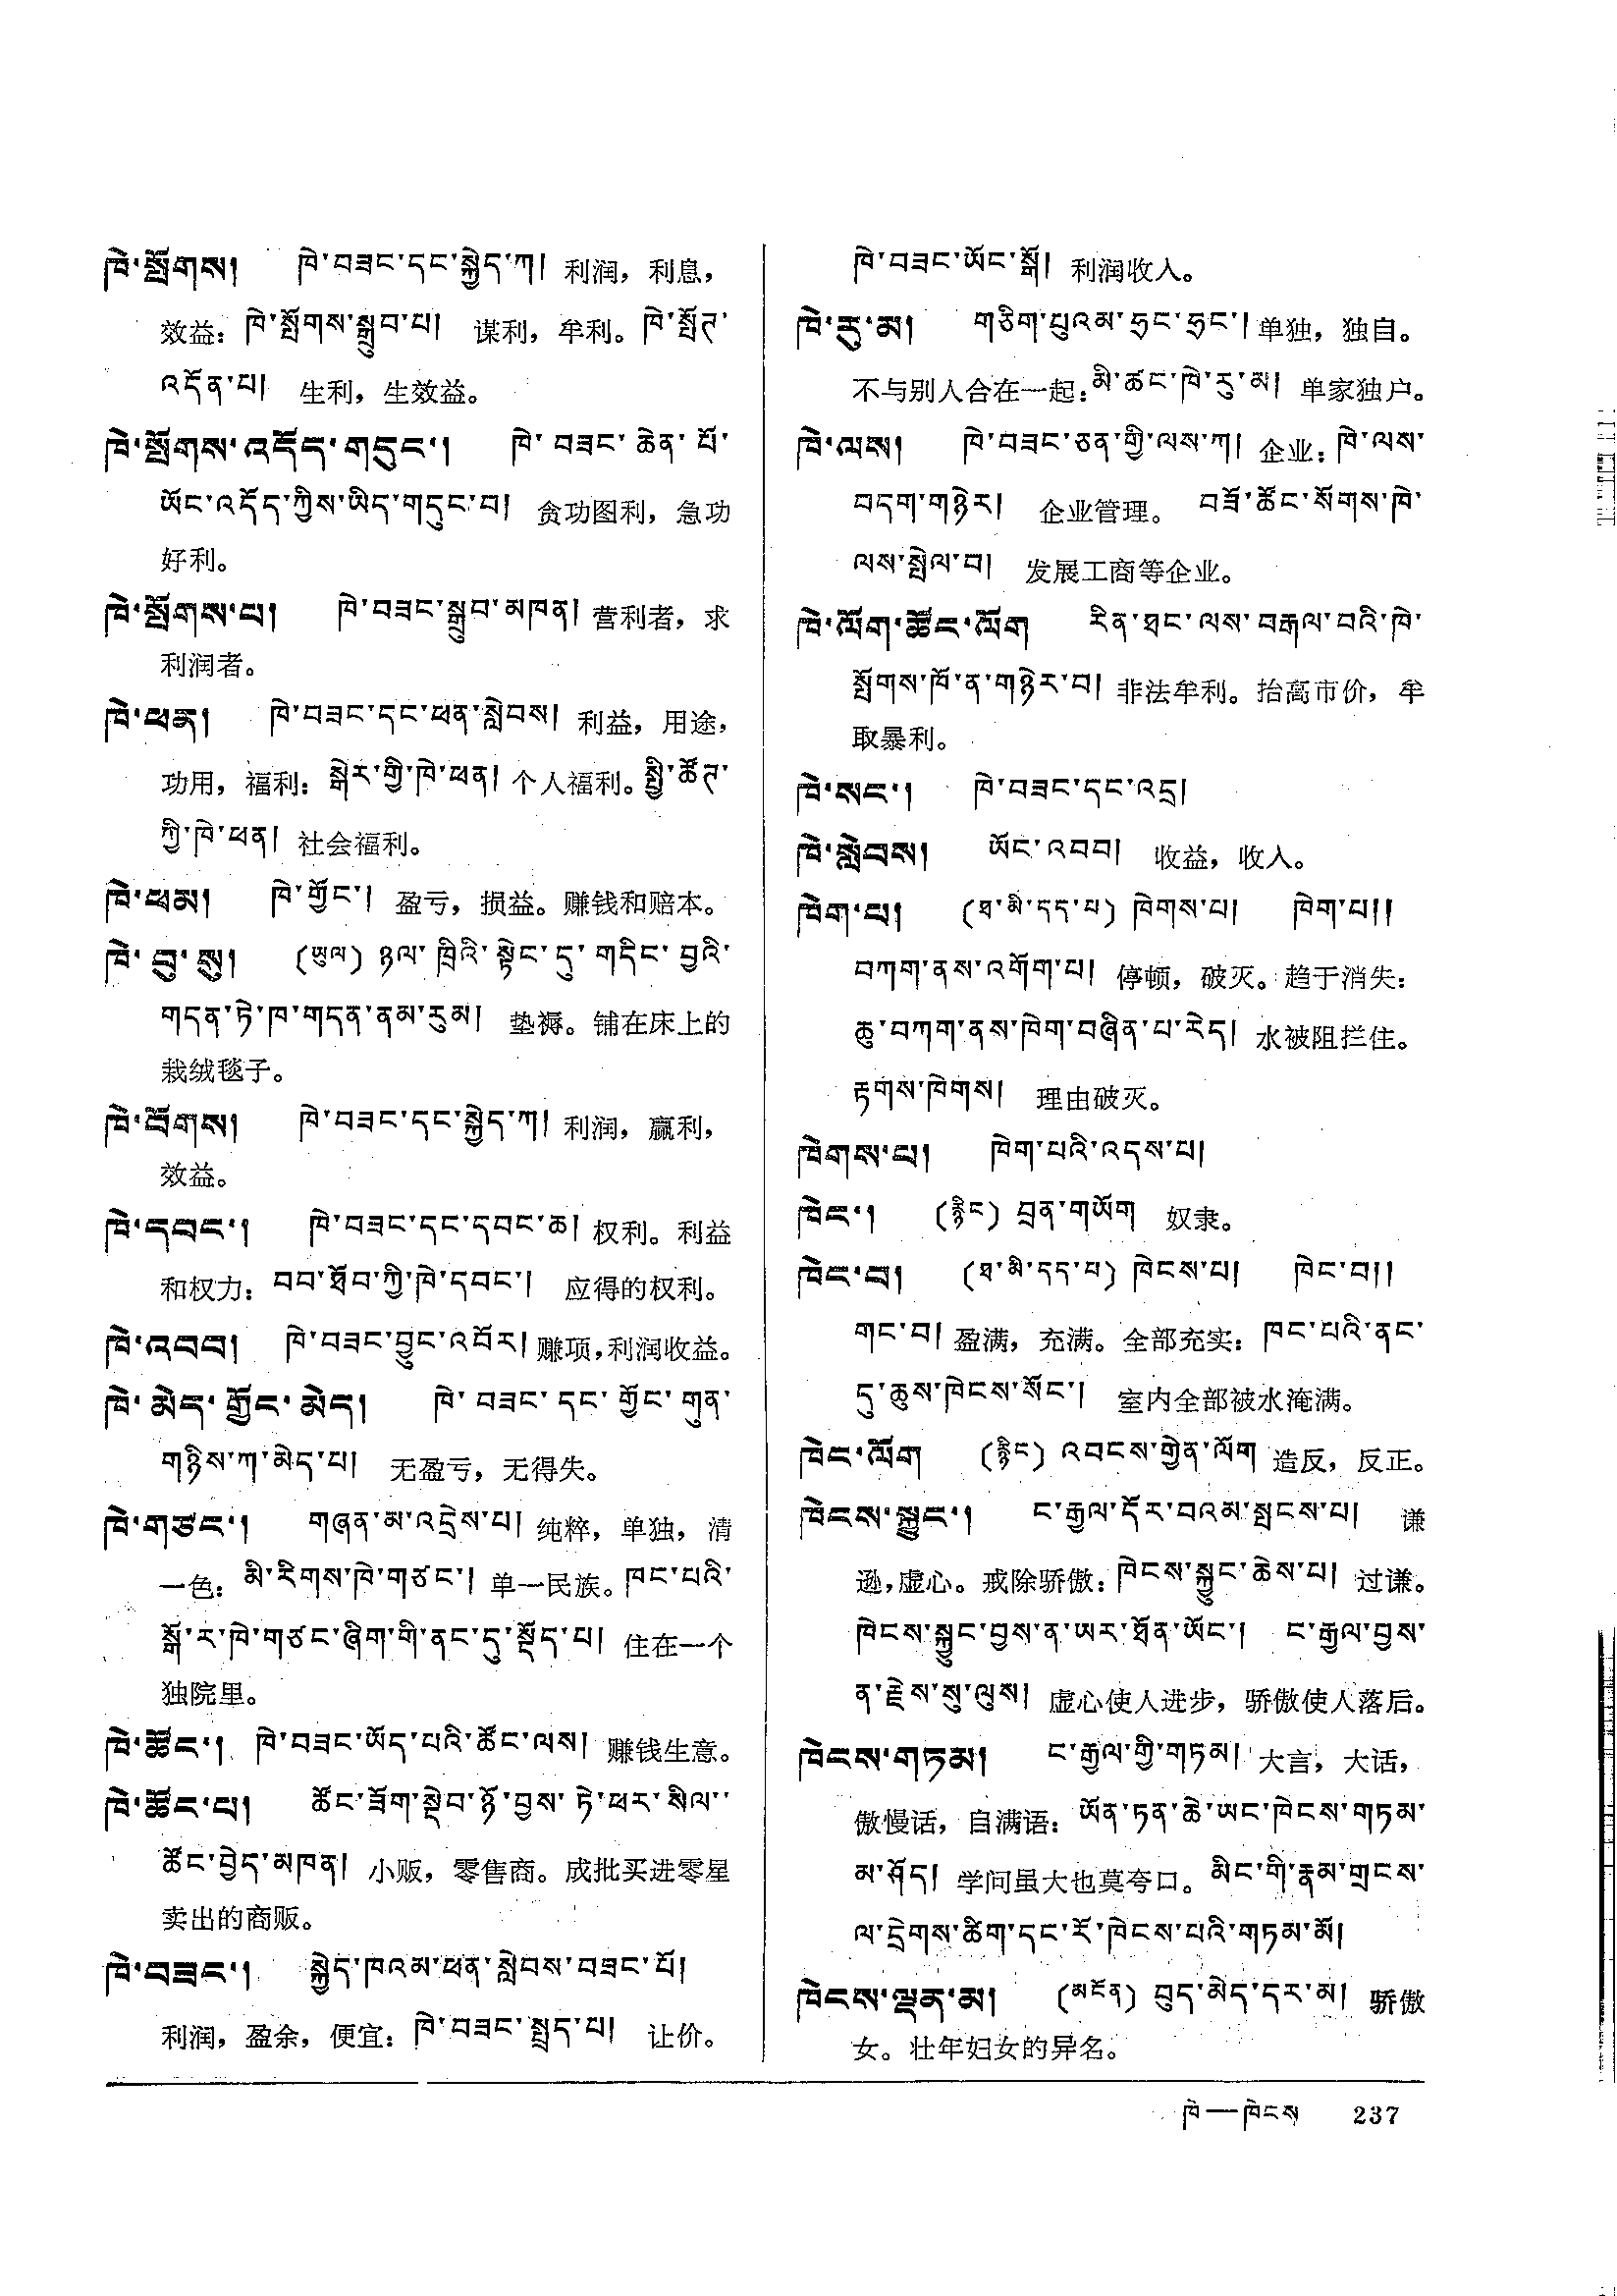 ཁེ་སྤོགས། ཁེ་བཟང་དང་སྐྱེད་ཀ། 利润，利息，
效益：ཁེ་སྤོགས་སྒྲུབ་པ། 谋利，牟利。ཁེ་སྤོད་
འདོན་པ། 生利，生效益。
ཁེ་སྤོགས་འདོད་གདུང་། ཁེ་བཟང་ཆེན་པོ་
ཡོང་འདོད་ཀྱིས་ཡིད་གདུང་བ། 贪功图利，急功
好利。
ཁེ་སྤོགས་པ། ཁེ་བཟང་སྒྲུབ་མཁན། 营利者，求
利润者。
ཁེ་ཕན། ཁེ་བཟང་དང་ཕན་སླེབས། 利益，用途，
功用，福利：སྒེར་གྱི་ཁེ་ཕན། 个人福利。སྤྱི་ཚོད་
ཀྱི་ཁེ་ཕན། 社会福利。
ཁེ་ཕམ། ཁེ་གྱོང་། 盈亏，损益。赚钱和赔本。
ཁེ་བུ་སུ། (ཡུལ) ཉལ་ཁྲིའི་སྟེང་དུ་གདིང་བྱའི་
གདན་ཏེ་ཁ་གདན་ནམ་རུམ། 垫褥。铺在床上的
栽绒毯子。
ཁེ་བོགས། ཁེ་བཟང་དང་སྐྱེད་ཀ། 利润，赢利，
效益。
ཁེ་དབང་། ཁེ་བཟང་དང་དབང་ཆ། 权利。利益
和权力：བབ་ཐོབ་ཀྱི་ཁེ་དབང་། 应得的权利。
ཁེ་འབབ། ཁེ་བཟང་བྱུང་འབོར། 赚项，利润收益。
ཁེ་མེད་གྱོང་མེད། ཁེ་བཟང་དང་གྱོང་གུན་
གཉིས་ཀ་མེད་པ། 无盈亏，无得失。
ཁེ་གཙང་། གཞན་མ་འདྲེས་པ། 纯粹，单独，清
一色：མི་རིགས་ཁེ་གཙང་། 单一民族。ཁང་པའི་
སྒོ་ར་ཁེ་གཙང་ཞིག་གི་ནང་དུ་སྡོད་པ། 住在一个
独院里。
ཁེ་ཚོང་། ཁེ་བཟང་ཡོད་པའི་ཚོང་ལས། 赚钱生意。
ཁེ་ཚོང་པ། ཚོང་ཟོག་སྡེབ་ཉོ་བྱས་ཏེ་ཕར་སིལ་
ཚོང་བྱེད་མཁན། 小贩，零售商。成批买进零星
卖出的商贩。
ཁེ་བཟང་། སྐྱེད་ཁའམ་ཕན་སླེབས་བཟང་པོ།
利润，盈余，便宜：ཁེ་བཟང་སྤྲད་པ། 让价。
ཁེ་བཟང་ཡོང་སྒོ། 利润收入。
ཁེ་རུ་མ། གཅིག་པུའམ་ཧྲང་ཧྲང་། 单独，独自。
不与别人合在一起：མི་ཚང་ཁེ་རུ་མ། 单家独户。
ཁེ་ལས། ཁེ་བཟང་ཅན་གྱི་ལས་ཀ། 企业：ཁེ་ལས་
བདག་གཉེར། 企业管理。 བཟོ་ཚོང་སོགས་ཁེ་
ལས་སྤེལ་བ། 发展工商等企业。
ཁེ་ལོག་ཚོང་ལོག རིན་ཐང་ལས་བརྒལ་བའི་ཁེ་
སྤོགས་ཁོ་ན་གཉེར་བ། 非法牟利。抬高市价，牟
取暴利。
ཁེ་སང་། ཁེ་བཟང་དང་འདྲ།
ཁེ་སླེབས། ཡོང་འབབ། 收益，收入。
ཁེག་པ། (ཐ་མི་དད་པ) ཁེགས་པ། ཁེག་པ།།
བཀག་ནས་འགོག་པ། 停顿，破灭。趋于消失：
ཆུ་བཀག་ནས་ཁེག་བཞིན་པ་རེད། 水被阻拦住。
རྟགས་ཁེགས། 理由破灭。
ཁེགས་པ། ཁེག་པའི་འདས་པ།
ཁེང་། (རྙིང) བྲན་གཡོག 奴隶。
ཁེང་བ། (ཐ་མི་དད་པ) ཁེངས་པ། ཁེང་བ།།
གང་བ། 盈满，充满。全部充实：ཁང་པའི་ནང་
དུ་ཆུས་ཁེངས་སོང་། 室内全部被水淹满。
ཁེང་ལོག (རྙིང) འབངས་གྱེན་ལོག 造反，反正。
ཁེངས་སྐྱུང་། ང་རྒྱལ་དོར་བའམ་སྤངས་པ། 谦
逊，虚心。戒除骄傲：ཁེངས་སྐྱུང་ཆེས་པ། 过谦。
ཁེངས་སྐྱུང་བྱས་ན་ཡར་ཐོན་ཡོང་། ང་རྒྱལ་བྱས་
ན་རྗེས་སུ་ལུས། 虚心使人进步，骄傲使人落后。
ཁེངས་གཏམ། ང་རྒྱལ་གྱི་གཏམ། 大言，大话，
傲慢话，自满语：ཡོན་ཏན་ཆེ་ཡང་ཁེངས་གཏམ་
མ་ཤོད། 学问虽大也莫夸口。མིང་གི་རྣམ་གྲངས་
ལ་དྲེགས་ཚིག་དང་ངོ་ཁེངས་པའི་གཏམ་མོ།
ཁེངས་ལྡན་མ། (མངོན) བུད་མེད་དར་མ། 骄傲
女。壮年妇女的异名。
ཁེ—ཁེངས 237